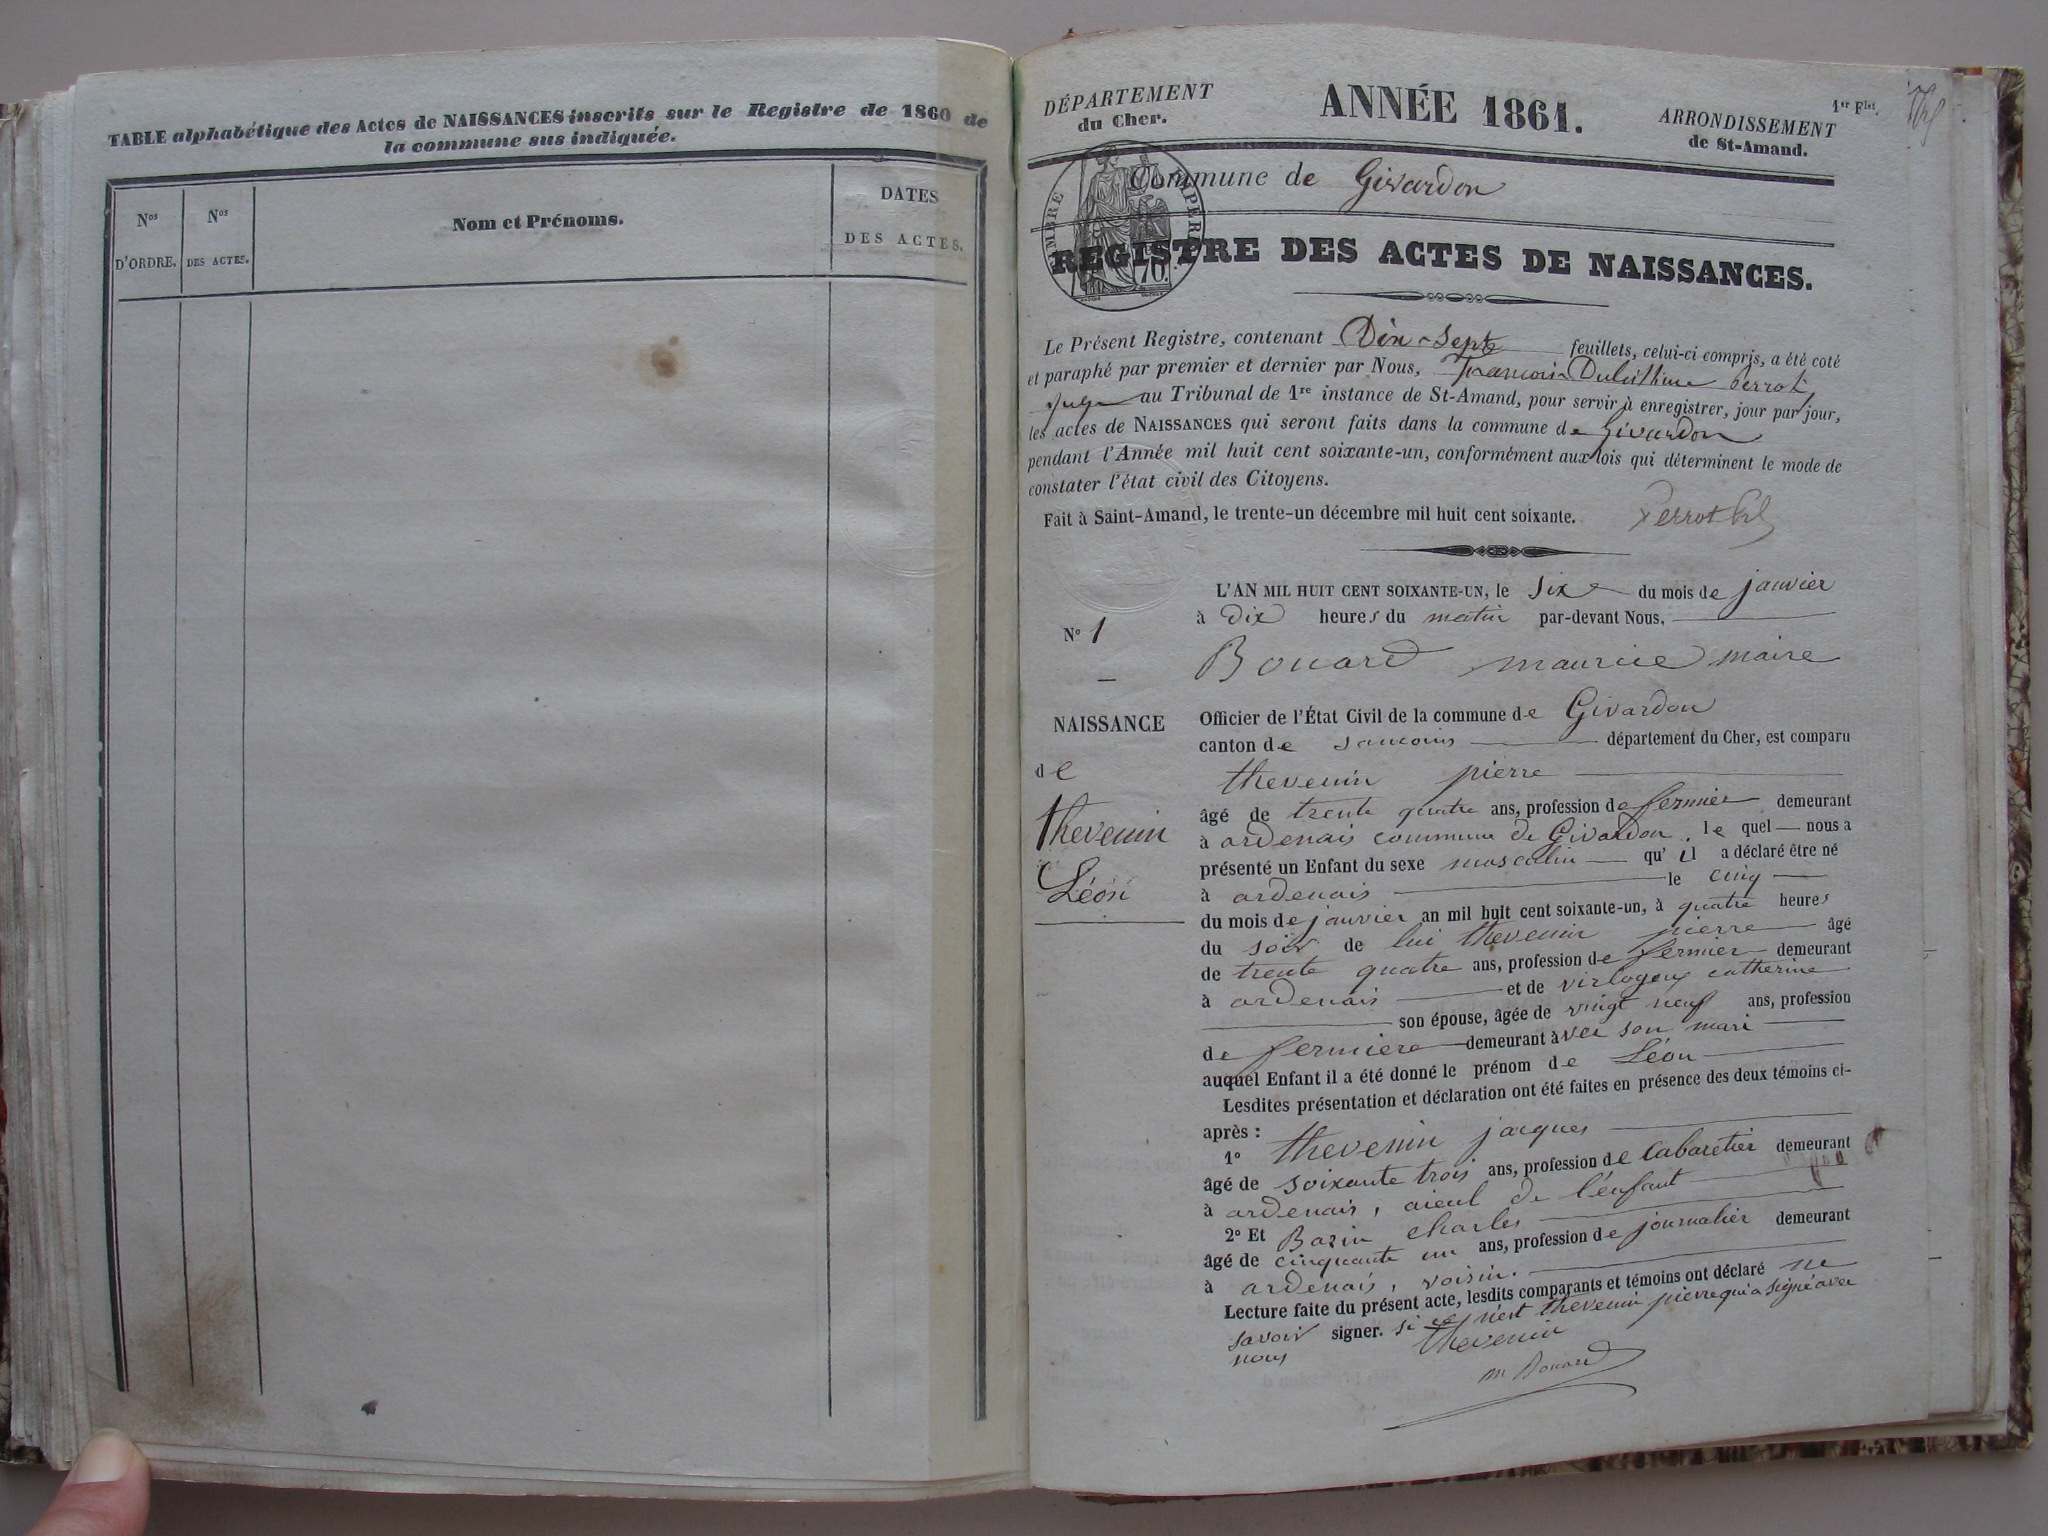 TABLE alphabétique des Actes de NAISSANCES inscrits sur le Registre de 1860 de
la commune sus indiquée.
Nos D'ORDRE.
Nos DES ACTES.
Nom et Prénoms.
DATES DES ACTES.
DÉPARTEMENT
du Cher.
ANNÉE 1861.
ARRONDISSEMENT
de St-Amand.
1er Flet.
Commune de Givardon
TIMBRE IMPERIAL
70
REGISTRE DES ACTES DE NAISSANCES.
Le Présent Registre, contenant Dix-Sept feuillets, celui-ci compris, a été coté
et paraphé par premier et dernier par Nous, Perrot
Juge au Tribunal de 1re instance de St-Amand, pour servir à enregistrer, jour par jour,
les actes de NAISSANCES qui seront faits dans la commune de Givardon
pendant l'Année mil huit cent soixante-un, conformément aux lois qui déterminent le mode de
constater l'état civil des Citoyens.
Fait à Saint-Amand, le trente-un décembre mil huit cent soixante.
Perrot
L'AN MIL HUIT CENT SOIXANTE-UN, le six du mois de janvier
à dix heures du matin par-devant Nous,
No 1
Bouard maurice maire
NAISSANCE
de
thevenin
Léon
Officier de l'État Civil de la commune de Givardon
canton de sancoins département du Cher, est comparu
thevenin pierre
âgé de trente quatre ans, profession de fermier demeurant
à ardenais commune de Givardon. le quel nous a
présenté un Enfant du sexe masculin qu'il a déclaré être né
à ardenais le cinq
du mois de janvier an mil huit cent soixante-un, à quatre heures
du soir de lui thevenin pierre âgé
de trente quatre ans, profession de fermier demeurant
à ardenais et de virlogeux catherine
son épouse, âgée de vingt neuf ans, profession
de fermiere demeurant avec son mari
auquel Enfant il a été donné le prénom de Léon
Lesdites présentation et déclaration ont été faites en présence des deux témoins ci-
après :
1o thevenin jacques
âgé de soixante trois ans, profession de cabaretier demeurant
à ardenais, aieul de l'enfant
2o Et Bazin charles
âgé de cinquante un ans, profession de journalier demeurant
à ardenais, voisin.
Lecture faite du présent acte, lesdits comparants et témoins ont déclaré ne
savoir signer. si ce n'est thevenin pierre qui a signé avec
nous
thevenin
m Bouard